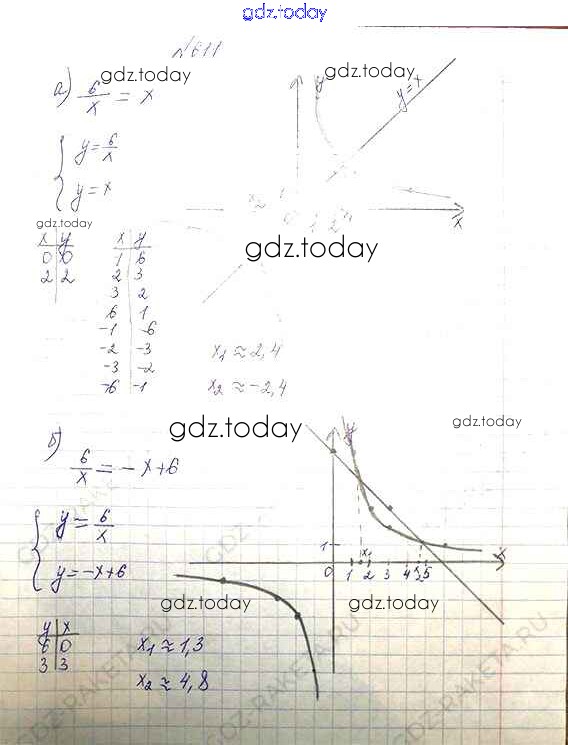 gdz.today
№611
gdz.today gdz.today
а) 6/x = x
y = x
{ y = 6/x
y = x
gdz.today
x y
0 0
2 2
x y
1 6
2 3
3 2
6 1
-1 -6
-2 -3
-3 -2
-6 -1
0 1 2 x
gdz.today
x₁ ≈ 2,4
x₂ ≈ -2,4
gdz.today gdz.today
б) 6/x = -x+6
{ y = 6/x
y = -x+6
y
1
0 1 x₁ 2 3 4 5 x
gdz.today gdz.today
y x
6 0
3 3
x₁ ≈ 1,3
x₂ ≈ 4,8
GDZ-RAKETA.RU